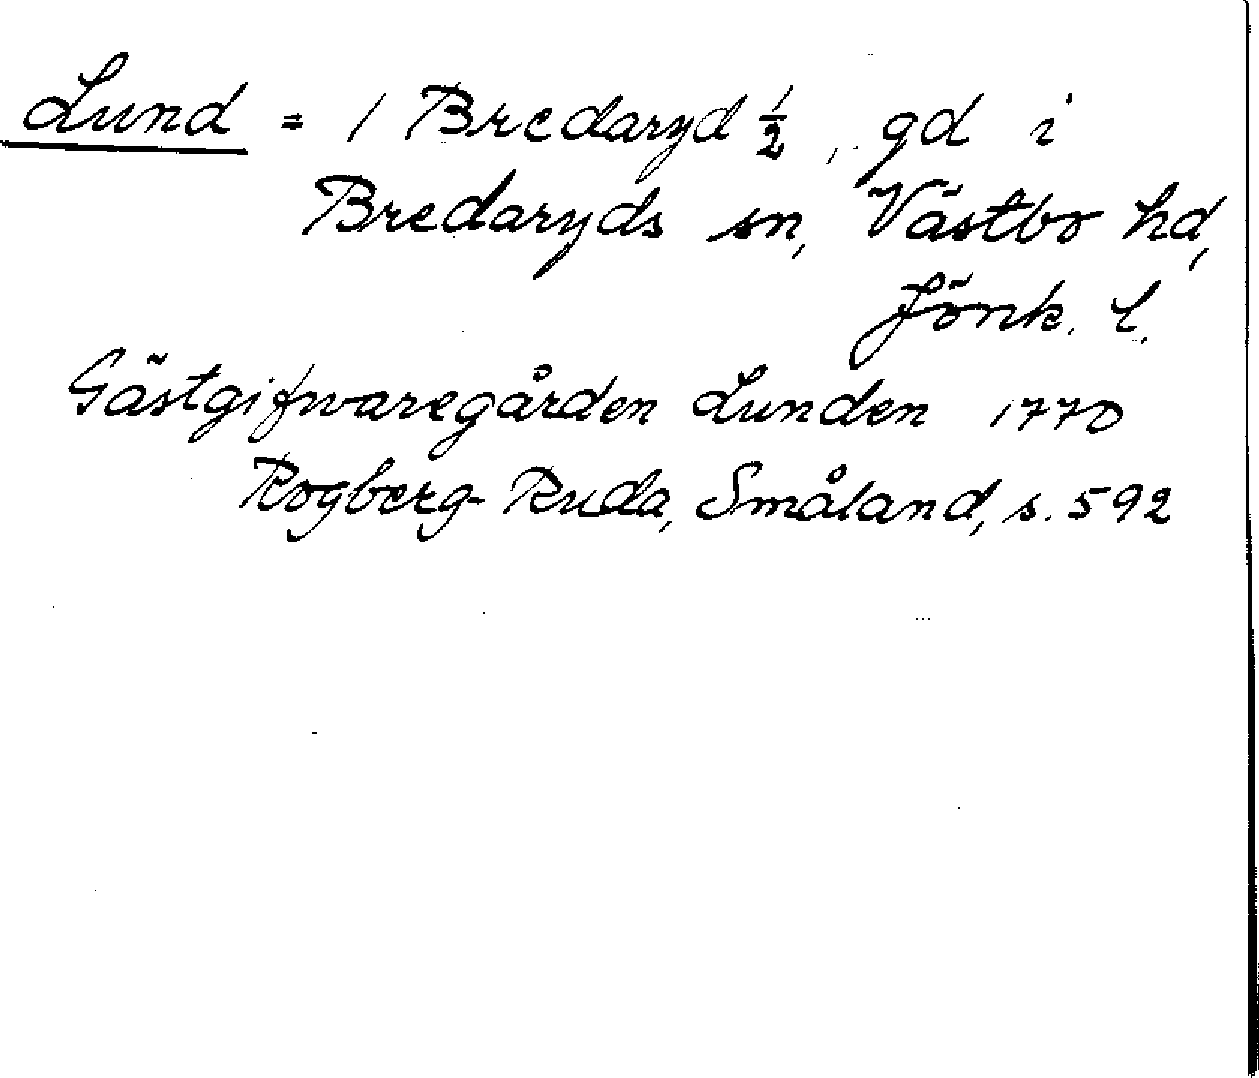 Lund = 1 Bredaryd ½, gd i
Bredaryds sn, Västbo hd,
Jönk. l.
Gästgifwaregården Lunden 1770
Rogberg-Ruda, Småland, s. 592